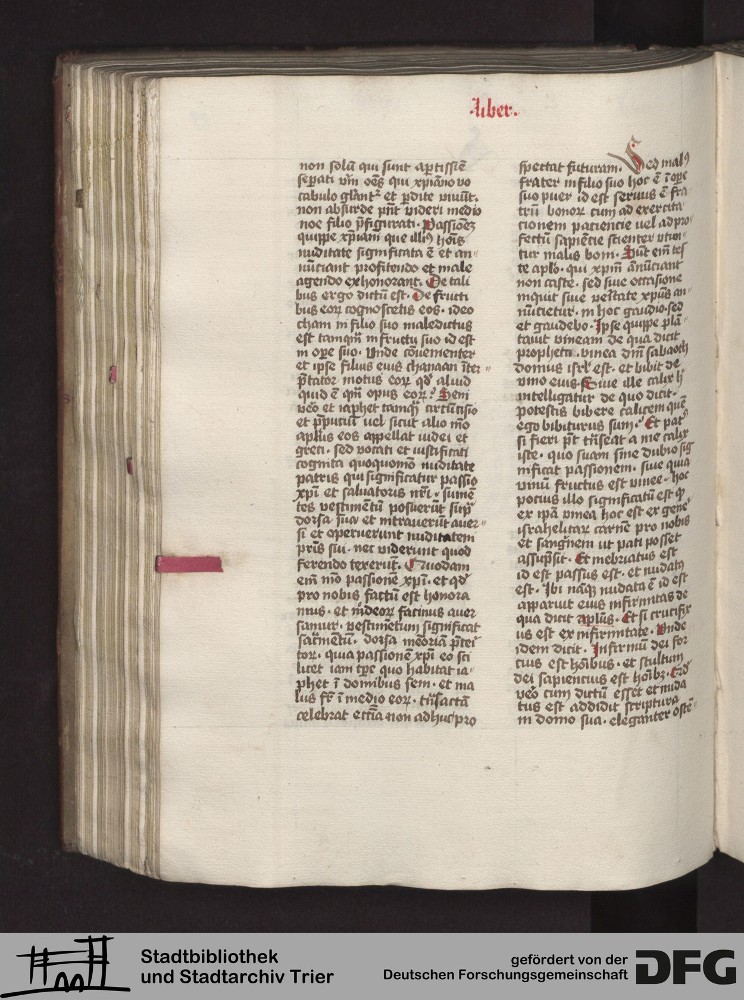 .Liber.
non solū qui sunt aꝑtissiē
seꝑati vm̄ oēs qui xp̄iāno vo
cabulo glant᷑ et ꝑdite viuūt.
non absurde pn̄t videri medio
noe filio p̄figurati. Passionez
quippe xp̄ianā que illiꝰ hoīs
nuditate significata ē et an-
nūciant profitendo et male
agendo exhonorant. De tali
bus ergo dictū est. De fructi
bus eorꝝ cognoscetis eos. ideo
cham in filio suo maledictus
est tamqm̄ in fructu suo id est
in oꝑe suo. Vnde cōuenienter
et ipse filius eius chanaan īter-
p̄tator motus eorꝝ qd̄ aliud
quid ē qm̄ opus eorꝝ? Sem
veō et iaphet tamqᷓ circūcisio
et p̄puciū vel sicut alio mō
aplūs eos appellat iudei et
greci. sed vocati et iustificati
cognita quoquomō nuditate
patris qui significatur passio
xp̄i et saluatoris nr̄i. sumē
tes vestimētū posuerūt supͣ
dorsa sua et intrauerūt auer-
si et operuerunt nuditatem
pr̄is sui. nec viderunt quod
ferendo texerūt. Quodam
em̄ mō passionē xp̄i. et qd̄
pro nobis factū est honora
mus. et iudeorꝝ facinus auer
samur. vestimētum significat
sacm̄entū. dorsa meōriā p̄tei
torꝝ. quia passionē xp̄i eo sci
licet iam tꝑe quo habitat ia-
phet ī domibus sem. et ma
lus fr̄ ī medio eorꝝ. trn̄sactā
celebrat eccīa non adhuc pro
spectat futuram. Sed malꝰ
frater in filio suo hoc ē ī oꝑe
suo puer id est seruus ē fra
trū bonorꝝ cum ad exercita
cionem paciencie vel ad pro-
fectū sapiēcie scienter vtun-
tur malis boni. Sūt em̄ tes
te aplō. qui xp̄m ānūciant
non caste. sed siue occasione
inquit siue veritate xp̄us an-
nūcietur. in hoc gaudio. sed
et gaudebo. Ipse quippe plā-
tauit vineam de qua dicit
propheta. vinea dn̄i sabaoth
domus isrl̄ est. et bibit de
vino eius. Siue ille calix h
intelligatur de quo dicit.
potestis bibere calicem quē
ego bibiturus sum. Et patͬ
si fieri pt̄ trn̄seat a me calix
iste. quo suam sine dubio sig
nificat passionem. siue quia
vinū fructus est vinee. hoc
pocius illo significatū est qꝫ
ex ipā vinea hoc est ex gene
israhelitarꝝ carnē pro nobis
et sangnēm ut pati posset
assūpsit. Et inebriatus est
id est passus est. et nudatꝰ
est. Ibi nāqꝫ nudata ē id est
apparuit eius infirmitas de
qua dicit aplūs. Et si crucifix
us est ex infirmitate. Vnde
idem dicit. Infirmū dei for
cius est hoībus. et stultum
dei sapiencius est hoībꝫ.
veō cum dictū esset et nuda
tus est addidit scriptura
in domo sua. eleganter ostē-
Stadtbibliothek
und Stadtarchiv Trier
gefördert von der
Deutschen Forschungsgemeinschaft
DFG